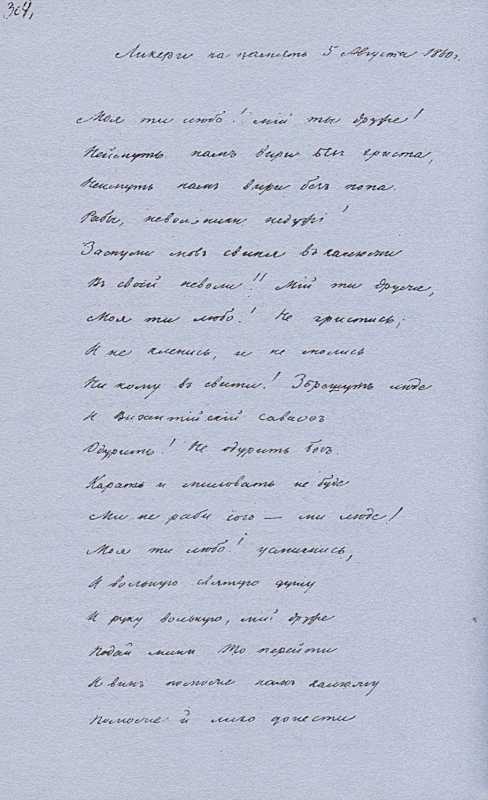 304,
Ликери на память 5 Августа 1860 г.
Моя ти любо! мій ты друже!
Неймуть намъ вири безъ христа,
Неймуть намъ вири безъ попа.
Рабы, невольники недужі!
Заснули мовъ свиня въ калюжи
Въ своій неволи!! Мій ти друже,
Моя ти любо! Не христись,
И не кленись, и не молись
Ни кому въ свити! Збрешуть люде
И Византійскій саваоѳ
Одурить! Не одурить богъ.
Карать и миловать не буде
Ми не раби его — ми люде!
Моя ти любо! усмихнись,
И вольную святую душу
И руку вольную, мій друже
Подай мини То перейти
И винъ поможе намъ калюжу
Поможе й лихо донести